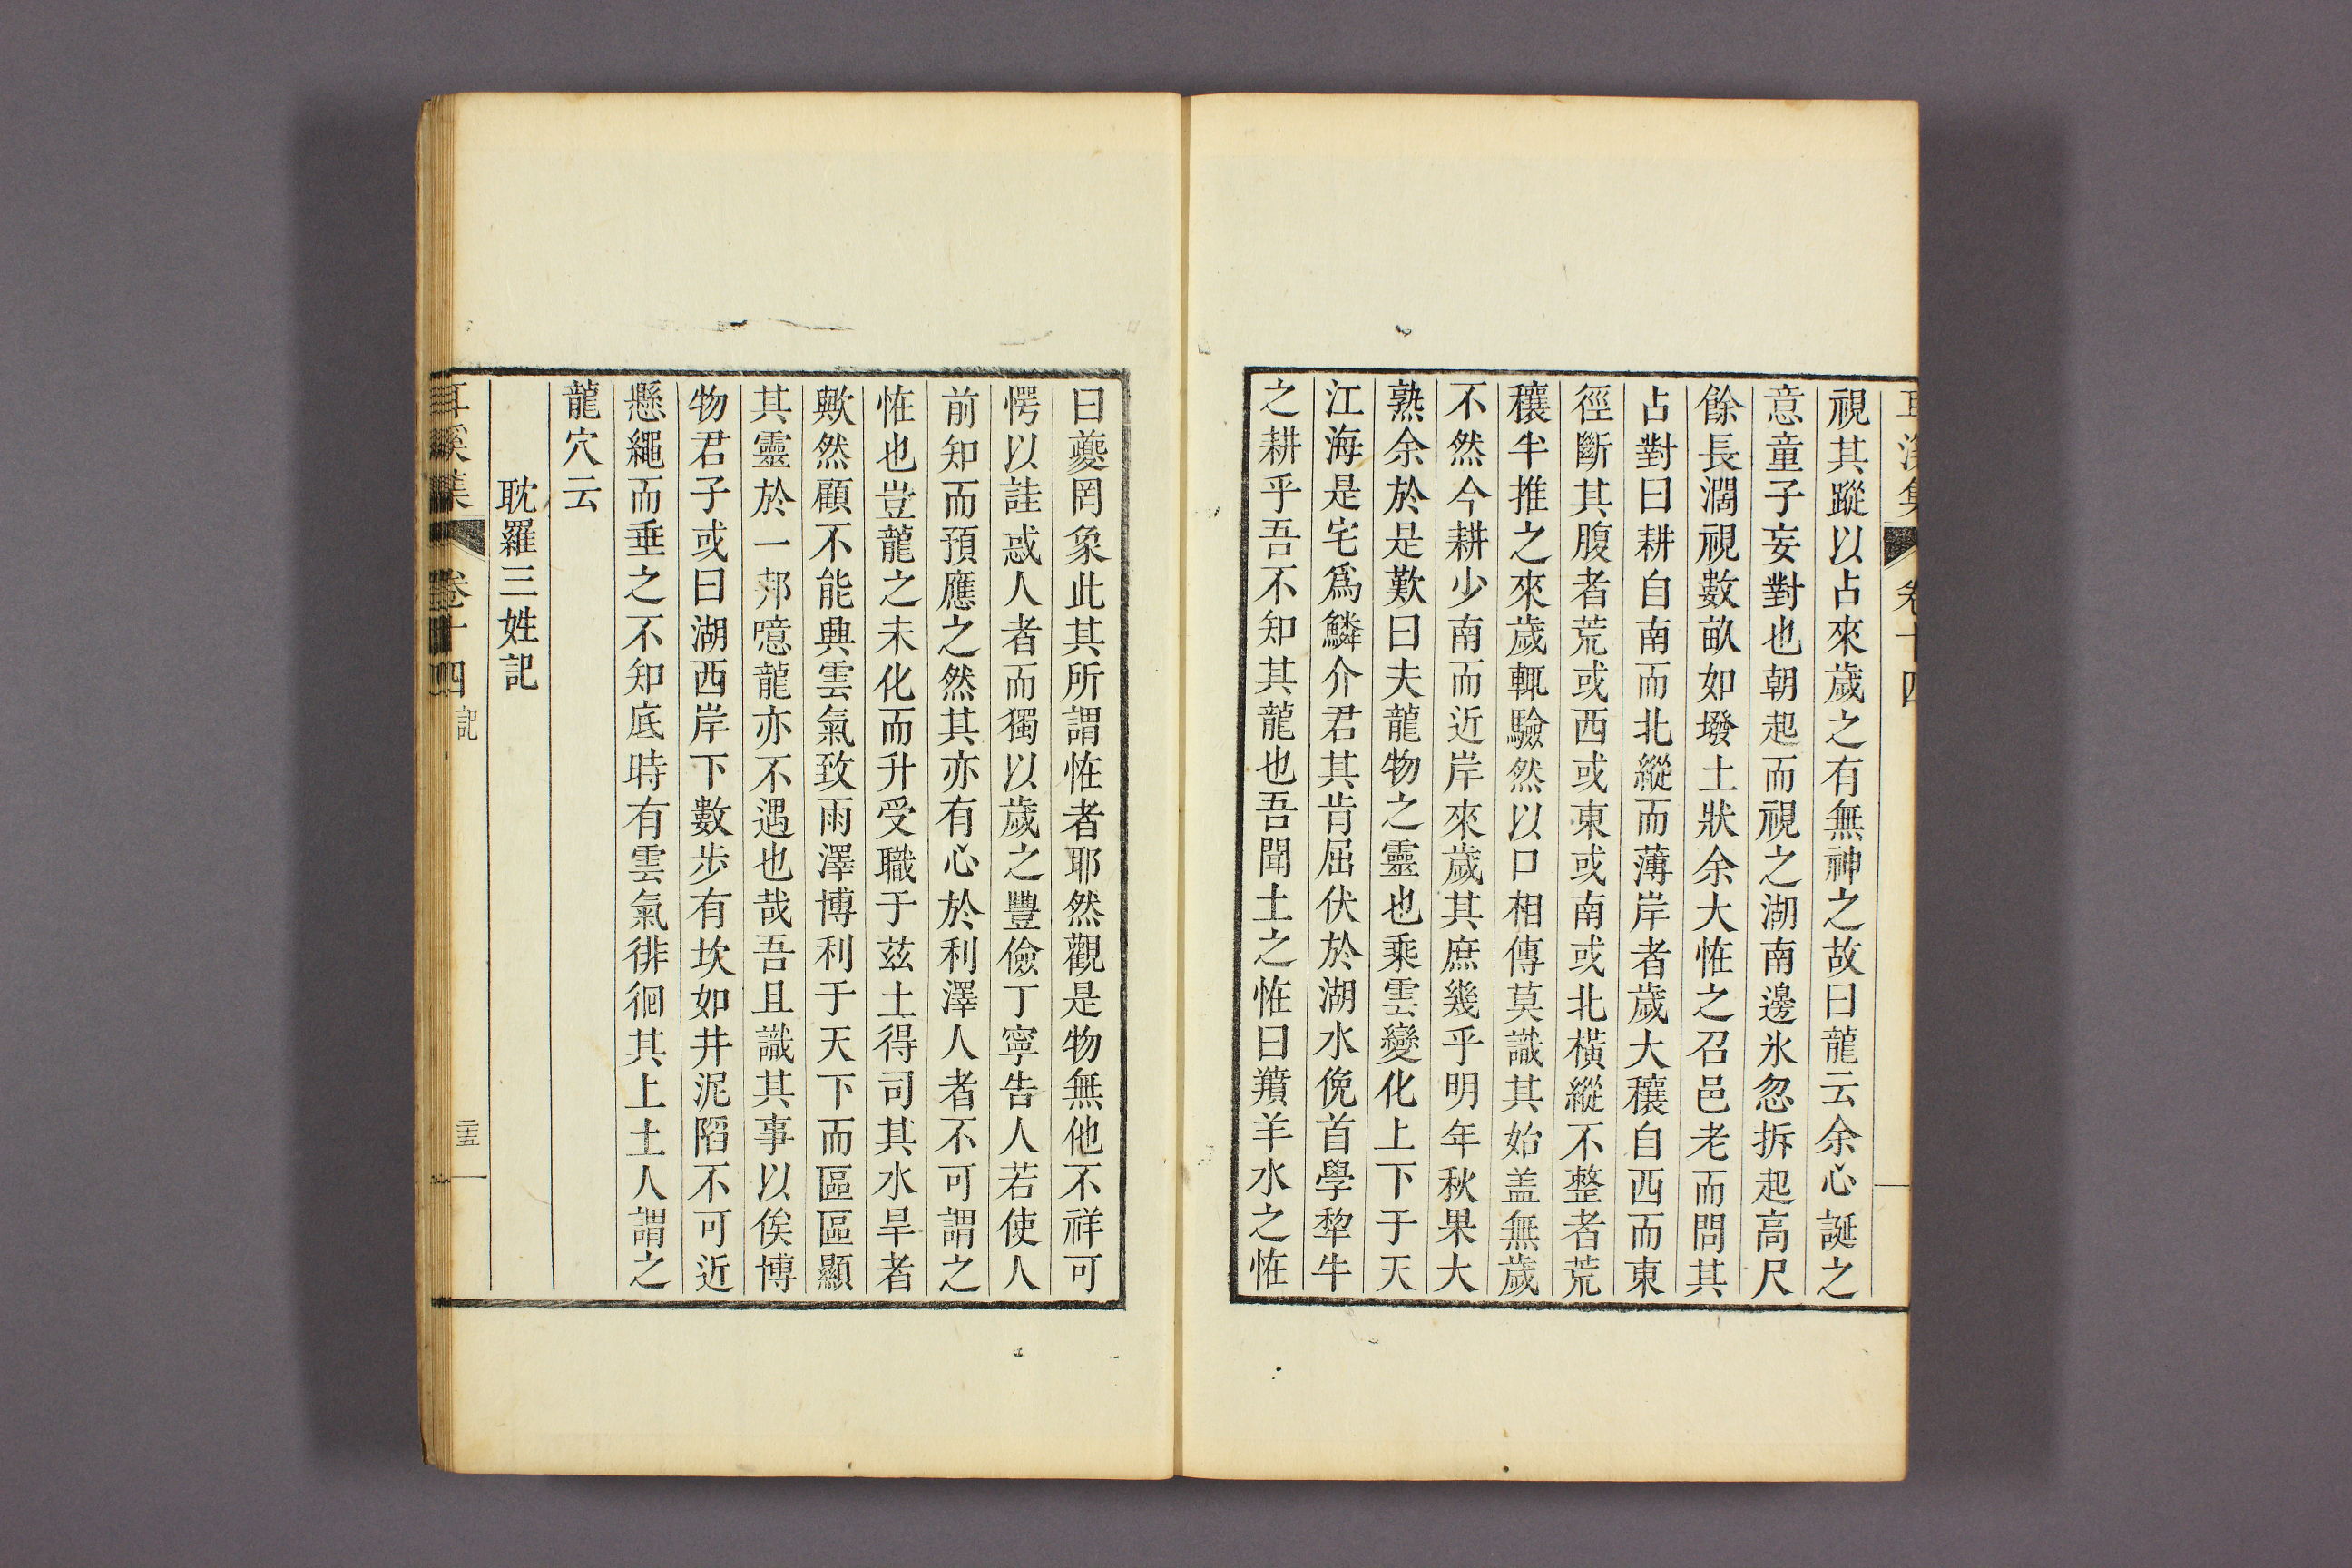 視其蹤以占來歲之有無神之故曰龍云余心誕之
意童子妄對也朝起而視之湖南邊氷忽拆起高尺
餘長濶視數畝如墢土狀余大恠之召邑老而問其
占對曰耕自南而北縱而薄岸者歲大穰自西而東
徑斷其腹者荒或西或東或南或北橫縱不整者荒
穰半推之來歲輒驗然以口相傳莫識其始盖無歲
不然今耕少南而近岸來歲其庶幾乎明年秋果大
熟余於是歎曰夫龍物之靈也乘雲變化上下于天
江海是宅爲鱗介君其肯屈伏於湖水俛首學犂牛
之耕乎吾不知其龍也吾聞土之恠曰羵羊水之恠
曰夔罔象此其所謂恠者耶然觀是物無他不祥可
愕以詿惑人者而獨以歲之豐儉丁寧告人若使人
前知而預應之然其亦有心於利澤人者不可謂之
恠也豈龍之未化而升受職于茲土得司其水旱者
歟然顧不能興雲氣致雨澤博利于天下而區區顯
其靈於一邦噫龍亦不遇也哉吾且識其事以俟博
物君子或曰湖西岸下數步有坎如井泥陷不可近
懸繩而垂之不知底時有雲氣徘徊其上土人謂之
龍穴云
耽羅三姓記
耳溪集 卷十四 記 二十五